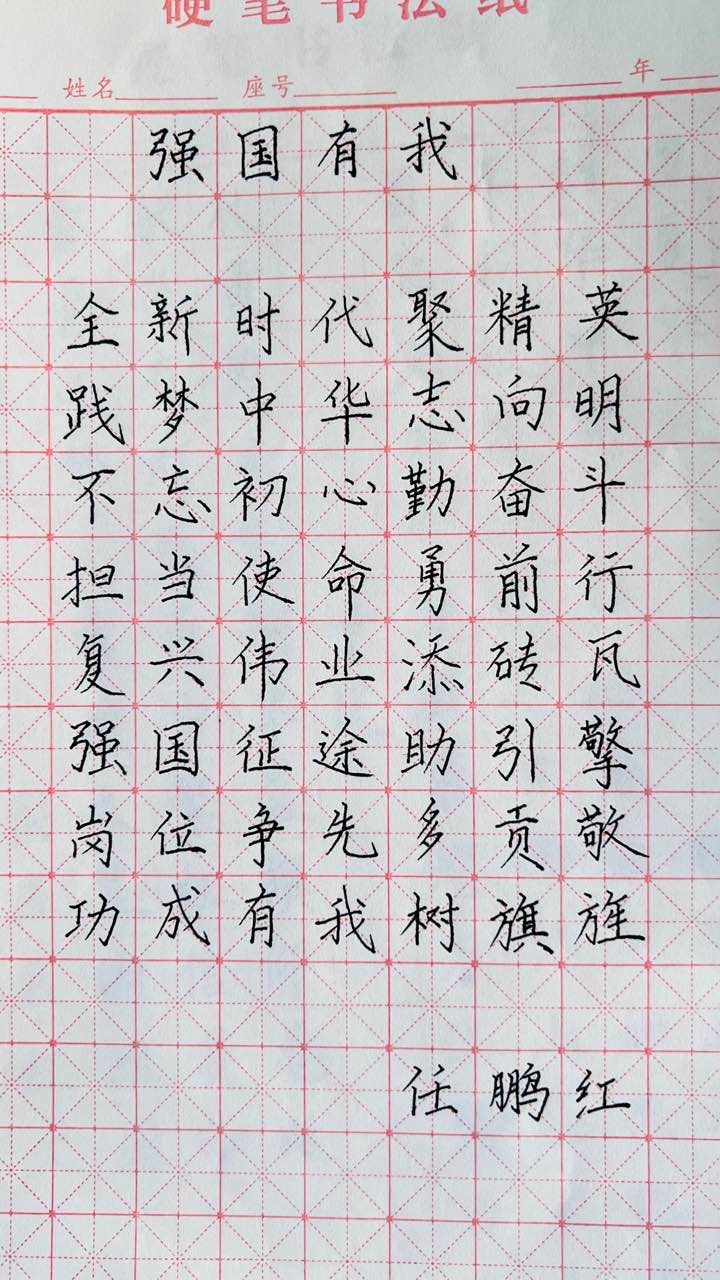 硬笔书法纸
姓名 座号 年
强国有我
全新时代聚精英
践梦中华志向明
不忘初心勤奋斗
担当使命勇前行
复兴伟业添砖瓦
强国征途助引擎
岗位争先多贡敬
功成有我树旗旌
任鹏红